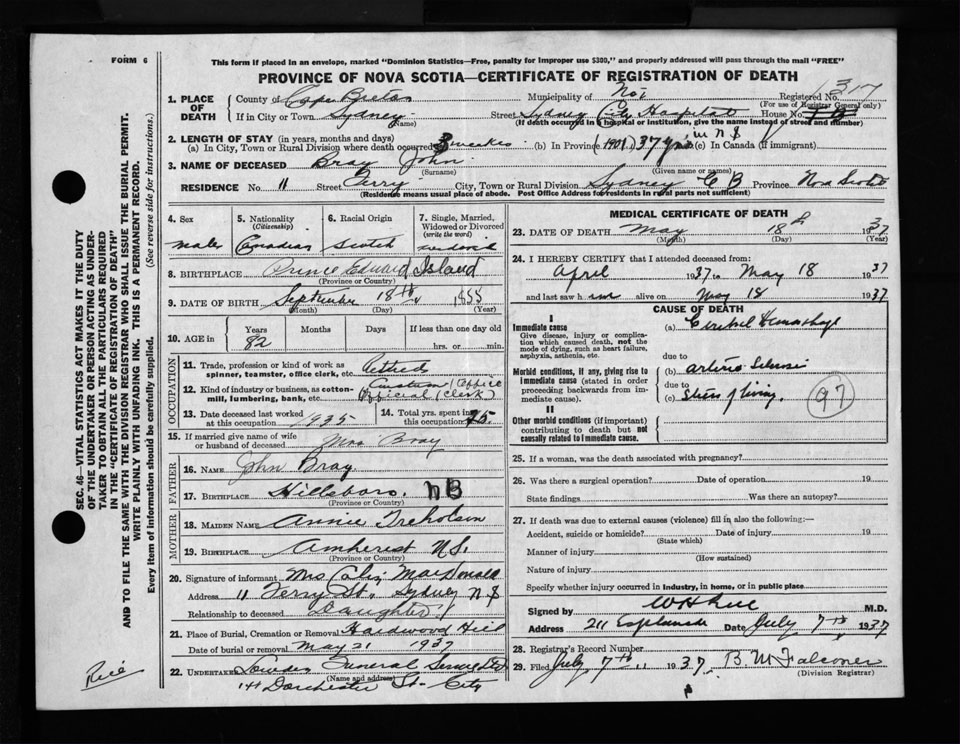 FORM 6
This form if placed in an envelope, marked "Dominion Statistics—Free, penalty for improper use $300," and properly addressed will pass through the mail "FREE"
PROVINCE OF NOVA SCOTIA—CERTIFICATE OF REGISTRATION OF DEATH
1. PLACE OF DEATH County of Cape Breton Municipality of Registered No. 317
(For use of Registrar General only)
If in City or Town Sydney Street Sydney City Hospital House No.
(Name) (If death occurred in a hospital or institution, give the name instead of street and number)
2. LENGTH OF STAY (in years, months and days)
(a) In City, Town or Rural Division where death occurred 3 weeks (b) In Province 37 yrs in N S (c) In Canada (if immigrant)
3. NAME OF DECEASED Bray John
(Surname) (Given name or names)
RESIDENCE No. 11 Street Ferry City, Town or Rural Division Sydney C B Province Nova Scotia
(Residence means usual place of abode. Post Office Address for residents in rural parts not sufficient)
4. Sex male
5. Nationality (Citizenship) Canadian
6. Racial Origin Scotch
7. Single, Married, Widowed or Divorced (write the word) widowed
8. BIRTHPLACE Prince Edward Island
(Province or Country)
9. DATE OF BIRTH September 18th 1855
(Month) (Day) (Year)
10. AGE in Years 82 Months Days If less than one day old hrs. or min.
OCCUPATION
11. Trade, profession or kind of work as spinner, teamster, office clerk, etc. retired
12. Kind of industry or business, as cotton-mill, lumbering, bank, etc. Custom Office Official (Clerk)
13. Date deceased last worked at this occupation 1935
14. Total yrs. spent in this occupation
15. If married give name of wife or husband of deceased Mrs Bray
FATHER
16. NAME John Bray
17. BIRTHPLACE Hillsboro. NB
(Province or Country)
MOTHER
18. MAIDEN NAME Annie
19. BIRTHPLACE Amherst N S.
(Province or Country)
20. Signature of informant Mrs MacDonald
Address 11 Ferry St. Sydney N S
Relationship to deceased Daughter
21. Place of Burial, Cremation or Removal Hardwood Hill
Date of burial or removal May 21 1937
22. Undertaker Funeral Service Ltd
(Name and address)
Dorchester St. City
MEDICAL CERTIFICATE OF DEATH
23. DATE OF DEATH May 18th 1937
(Month) (Day) (Year)
24. I HEREBY CERTIFY that I attended deceased from:
April 1937 to May 18 1937
and last saw him alive on May 18 1937
CAUSE OF DEATH
I
Immediate cause
Give disease, injury or complication which caused death, not the mode of dying, such as heart failure, asphyxia, asthenia, etc.
(a) Cerebral Hemorrhage
due to
Morbid conditions, if any, giving rise to immediate cause (stated in order proceeding backwards from immediate cause).
(b)
due to
(c) Stress of living.
97
II
Other morbid conditions (if important) contributing to death but not causally related to immediate cause.
25. If a woman, was the death associated with pregnancy?
26. Was there a surgical operation? Date of operation 19
State findings Was there an autopsy?
27. If death was due to external causes (violence) fill in also the following:—
Accident, suicide or homicide? Date of injury 19
(State which)
Manner of injury
(How sustained)
Nature of injury
Specify whether injury occurred in industry, in home, or in public place
Signed by M.D.
Address 211 Esplanade Date July 7th 1937
28. Registrar's Record Number
29. Filed July 7th 1937. B M Falconer
(Division Registrar)
SEC. 46—VITAL STATISTICS ACT MAKES IT THE DUTY
OF THE UNDERTAKER OR PERSON ACTING AS UNDER-
TAKER TO OBTAIN ALL THE PARTICULARS REQUIRED
IN THE "CERTIFICATE OF REGISTRATION OF DEATH"
AND TO FILE THE SAME WITH THE DIVISION REGISTRAR WHO SHALL ISSUE THE BURIAL PERMIT.
WRITE PLAINLY WITH UNFADING INK. THIS IS A PERMANENT RECORD.
Every item of information should be carefully supplied. (See reverse side for instructions.)